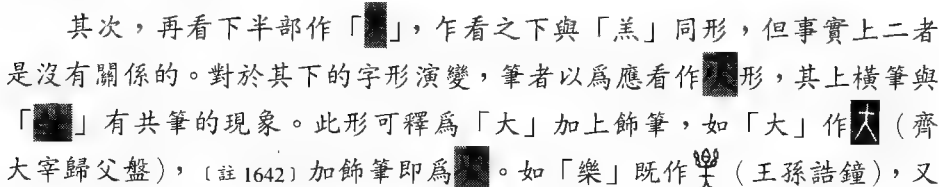 其次，再看下半部作「」，乍看之下與「羔」同形，但事實上二者
是沒有關係的。對於其下的字形演變，筆者以爲應看作形，其上橫筆與
「」有共筆的現象。此形可釋爲「大」加上飾筆，如「大」作（齊
大宰歸父盤），〔註1642〕加飾筆即爲。如「樂」既作（王孫誥鐘），又